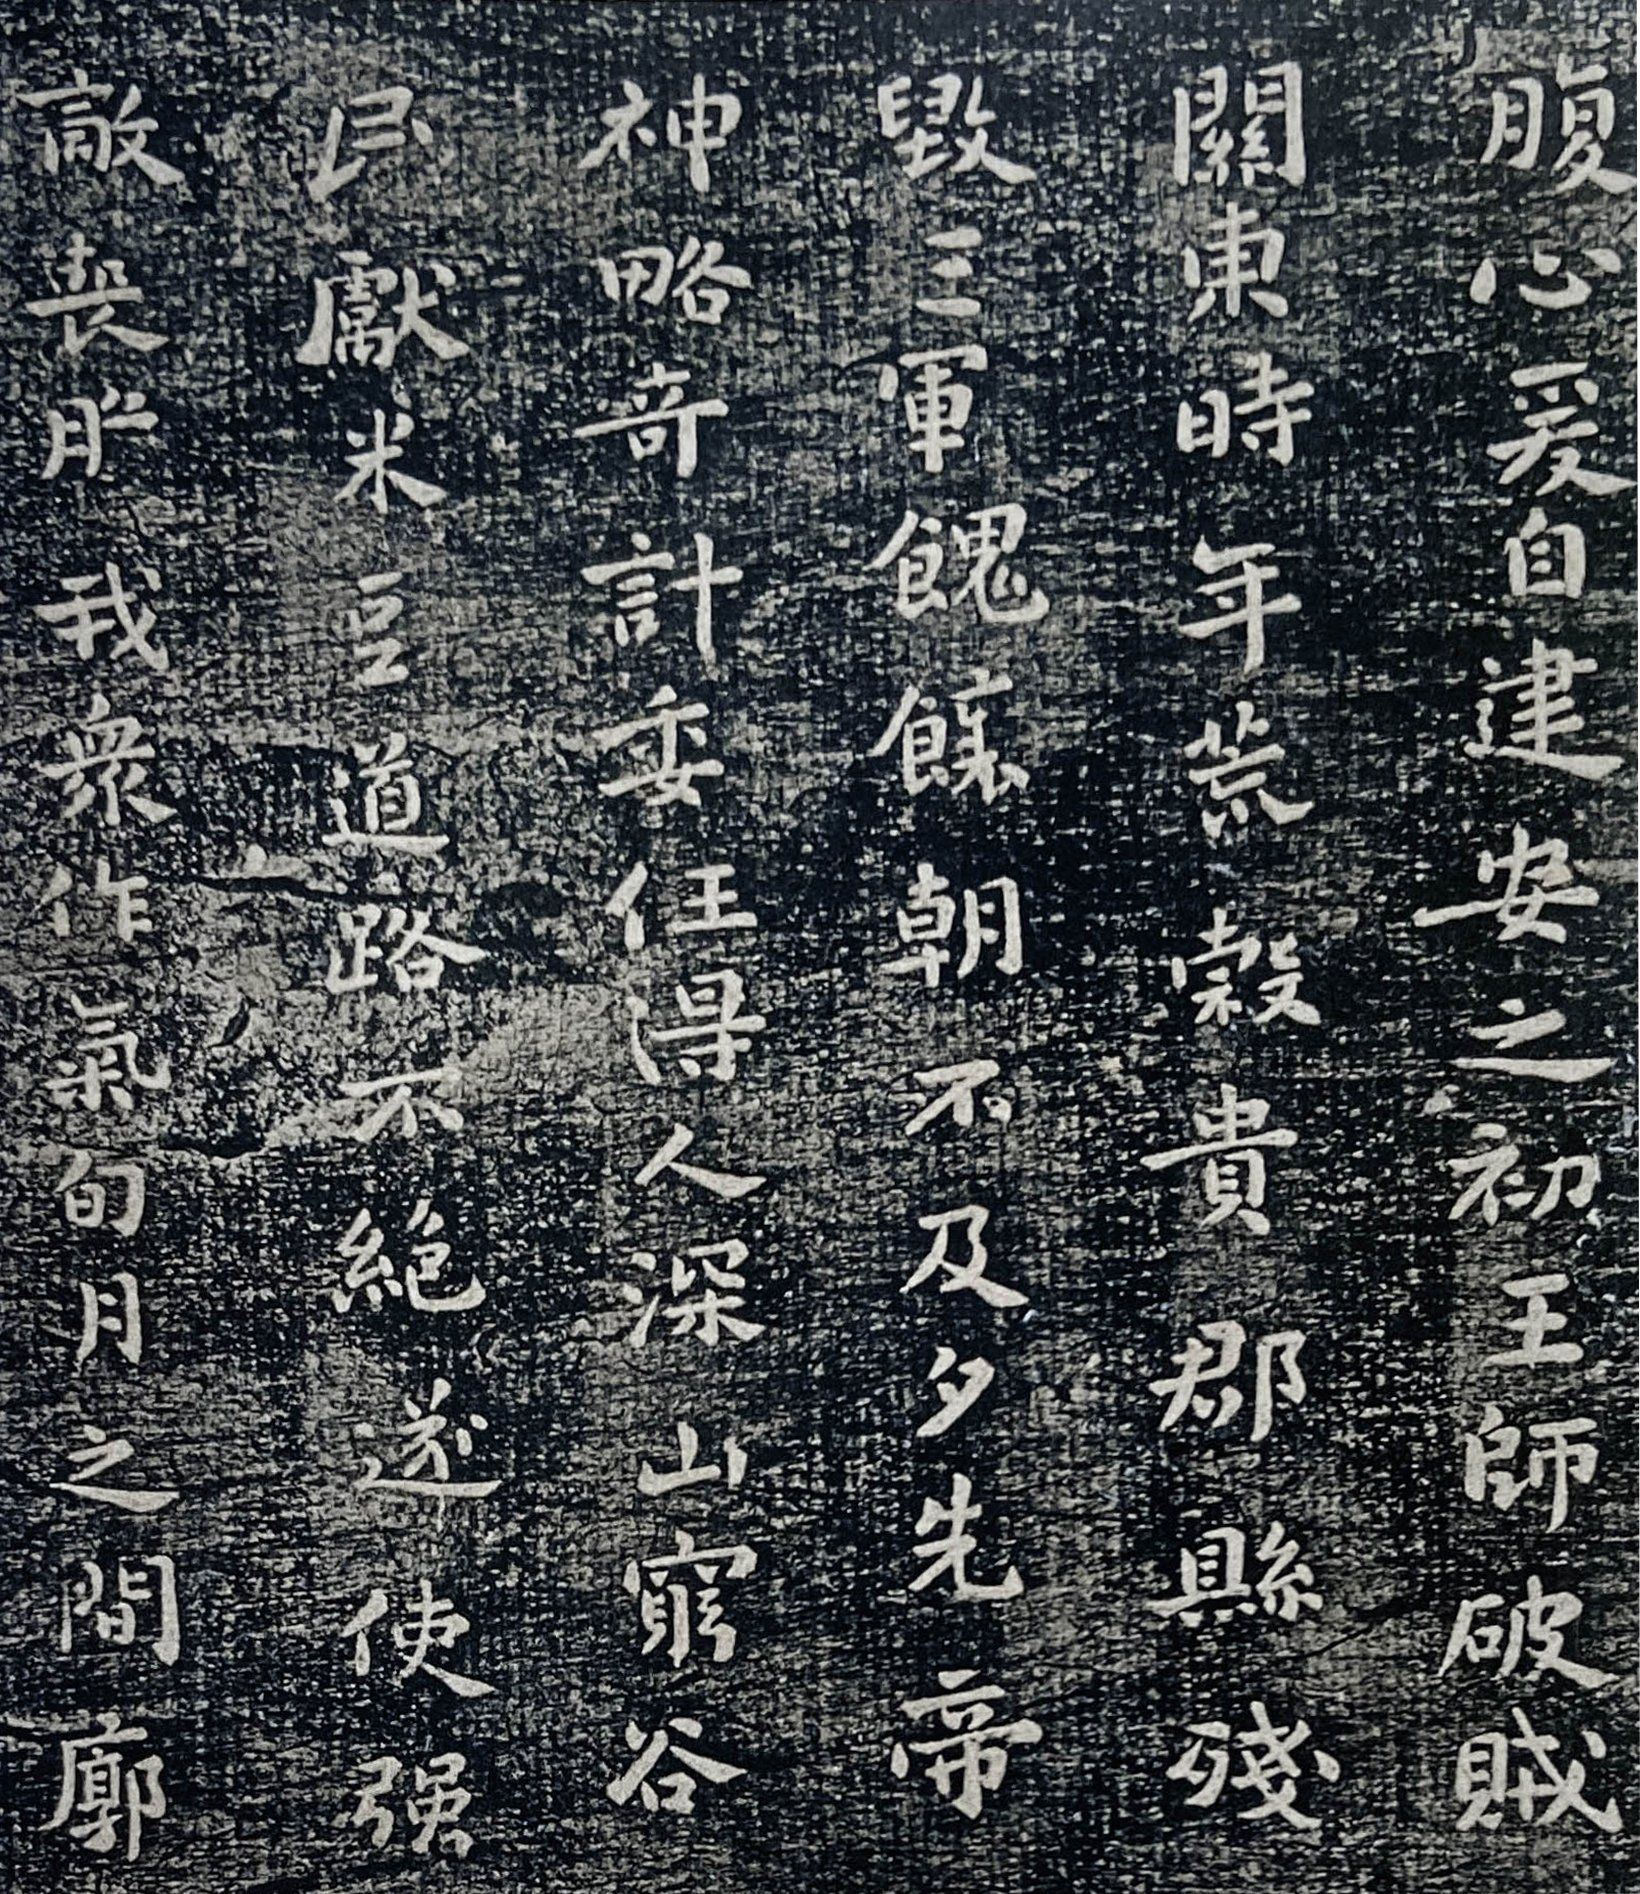 腹心爰自建安之初王師破賊
關東時年荒穀貴郡縣殘
毀三軍餽饟朝不及夕先帝
神略奇計委任得人深山窮谷
民獻米豆道路不絕遂使强
敵喪膽我衆作氣旬月之間廓